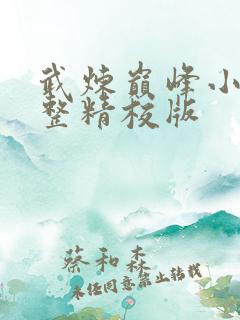 武炼巅峰小
整精校版
蔡和森
未经同意禁止转载